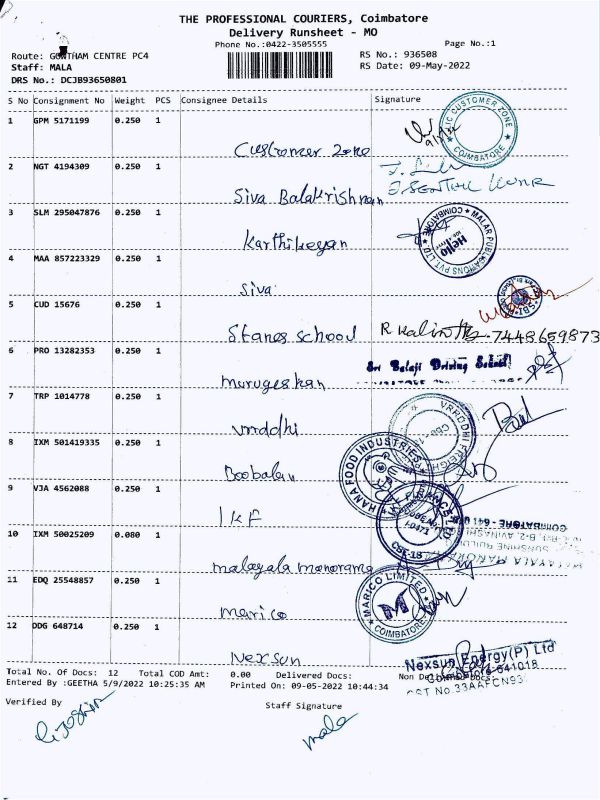 THE PROFESSIONAL COURIERS, Coimbatore
Delivery Runsheet - MO
Phone No.:0422-3505555
Page No.:1
Route: GOWTHAM CENTRE PC4
RS No.: 936508
Staff: MALA
RS Date: 09-May-2022
DRS No.: DCJB93650801
S No Consignment No Weight PCS Consignee Details Signature
1 GPM 5171199 0.250 1
Customer Zone
LIC CUSTOMER ZONE
COIMBATORE
2 NGT 4194309 0.250 1
Siva Balakrishnan
3 SLM 295047876 0.250 1
Karthikeyan
MALAR PUBLICATIONS PVT. LTD.
COIMBATORE
Hello
4 MAA 857223329 0.250 1
Siva
SBI
5 CUD 15676 0.250 1
Stanes school
7448659873
6 PRO 13282353 0.250 1
Murugeshan
Sri Balaji Driving School
7 TRP 1014778 0.250 1
Vrrddhi
8 IXM 501419335 0.250 1
Boobalan
HANA FOOD INDUSTRIES
9 VJA 4562088 0.250 1
IKF
CBE-18
10 IXM 50025209 0.080 1
malayala manorama
COIMBATORE - 641
11 EDQ 25548857 0.250 1
Marico
MARICO LIMITED
M
COIMBATORE
12 DDG 648714 0.250 1
Nexsun
Nexsun Energy(P) Ltd
Coimbatore-641018
Total No. Of Docs: 12 Total COD Amt: 0.00 Delivered Docs: Non Delivered Docs:
Entered By :GEETHA 5/9/2022 10:25:35 AM Printed On: 09-05-2022 10:44:34
Verified By
Staff Signature
mala